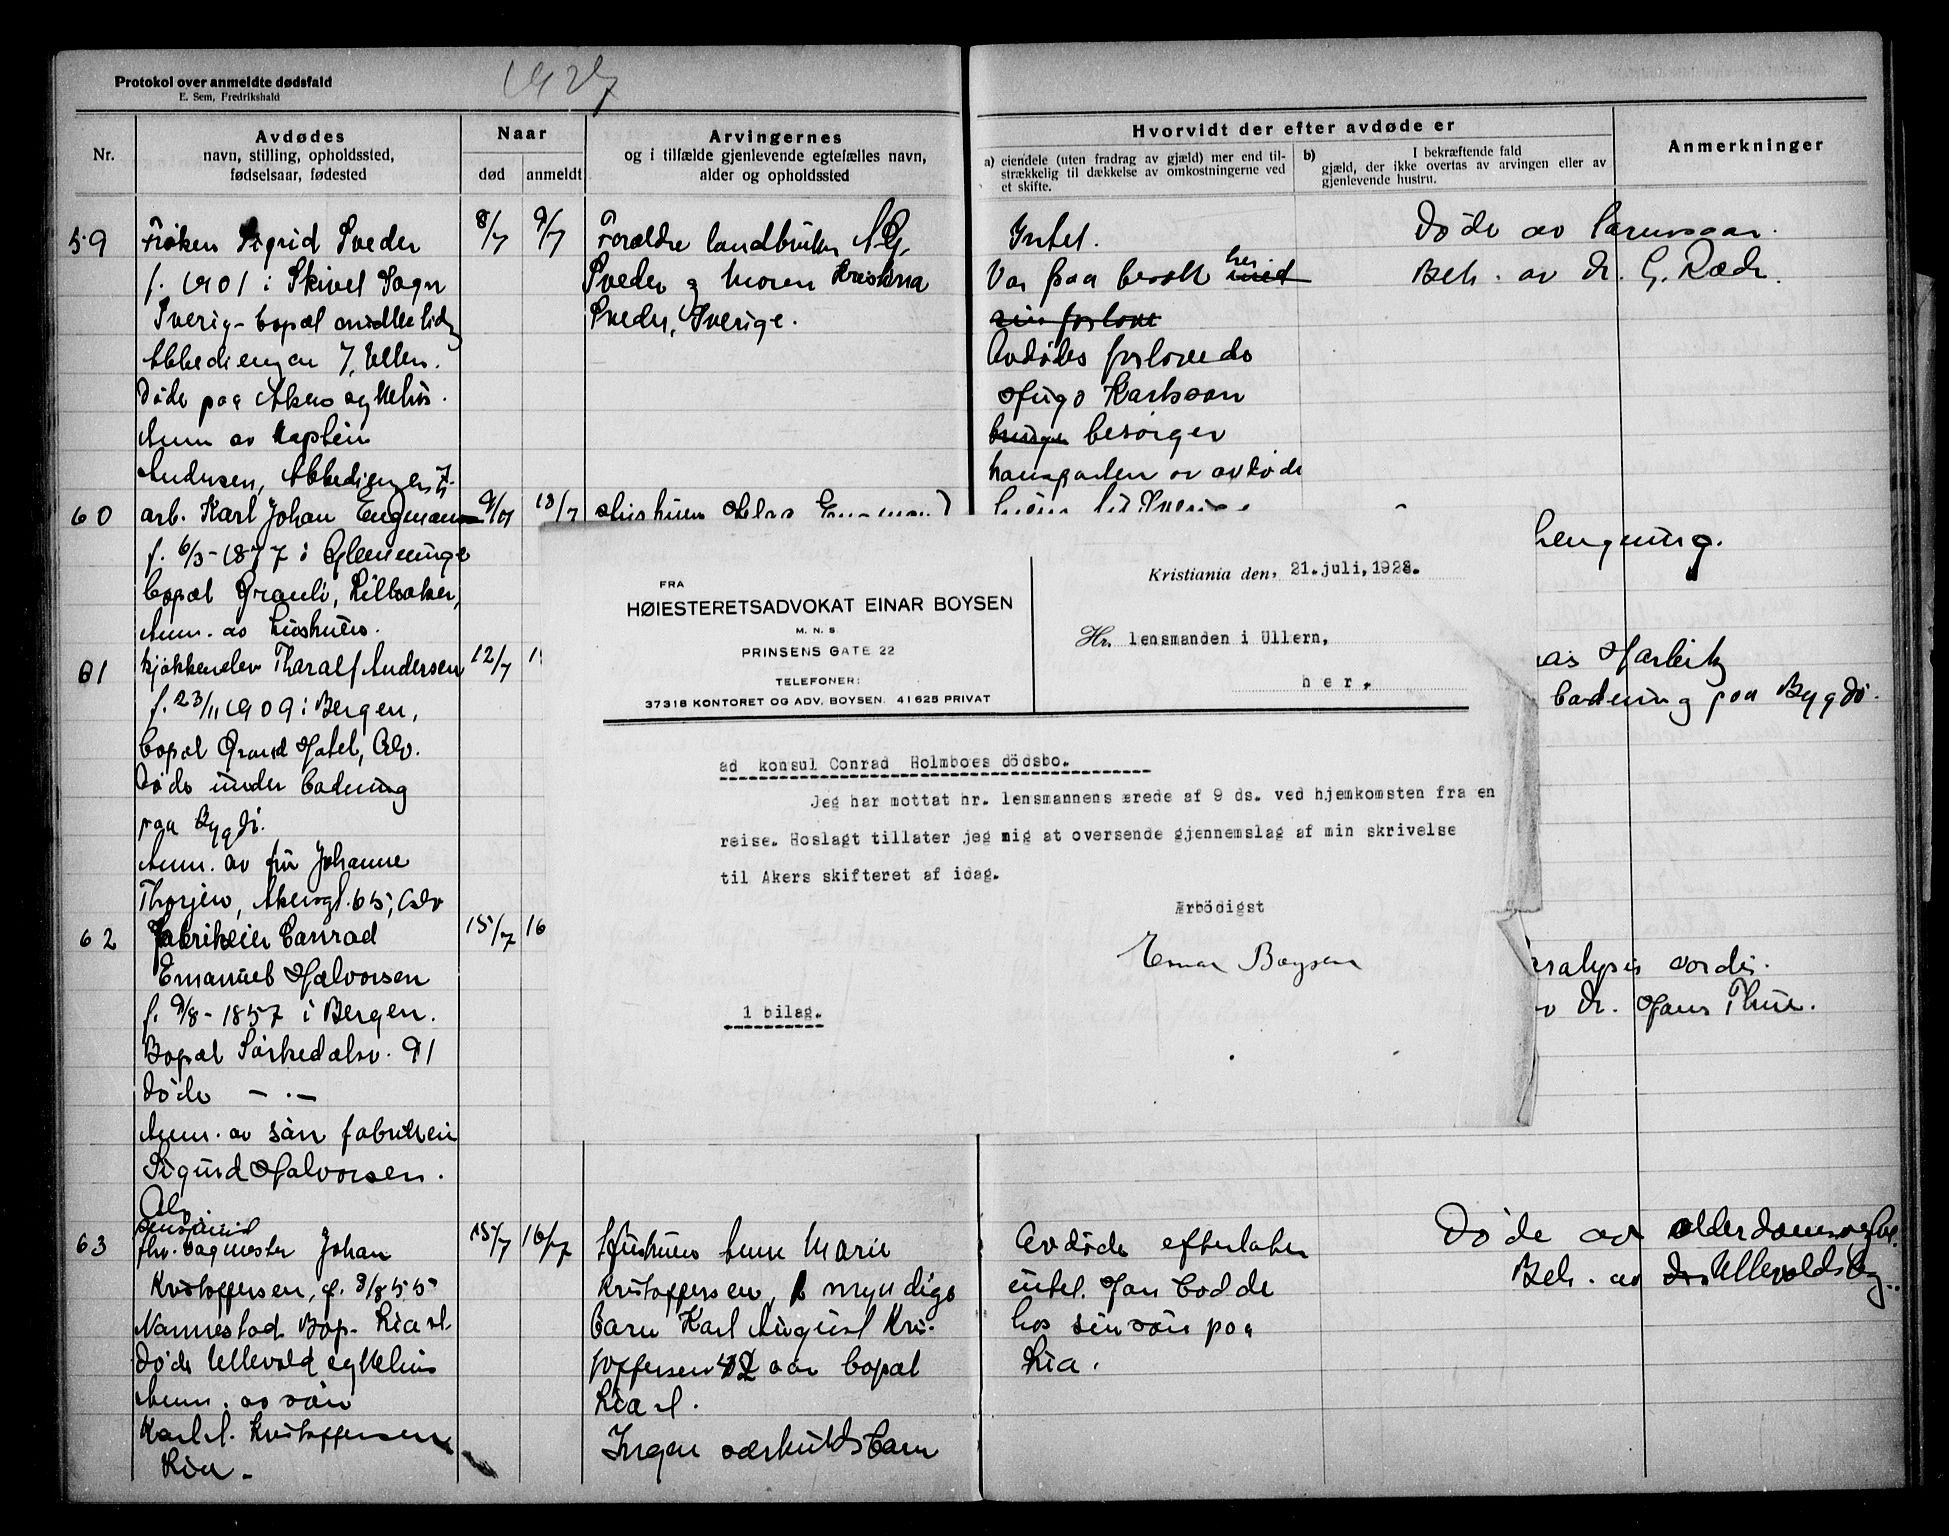 Protokol over anmeldte dødsfald
E. Sem, Fredrikshald
1927
Nr.
Avdødes
navn, stilling, opholdssted,
fødselsaar, fødested
Naar
død
anmeldt
Arvingernes
og i tilfælde gjenlevende egtefælles navn,
alder og opholdssted
Hvorvidt der efter avdøde er
a) eiendele (uten fradrag av gjæld) mer end til-
strækkelig til dækkelse av omkostningerne ved
et skifte.
b) I bekræftende fald
gjæld, der ikke overtas av arvingen eller av
gjenlevende hustru.
Anmerkninger
59
Frøken Sigrid Sveder
f. 1901 i Skivel Sogn
Sverig - bopæl midlertidig
Abbediengen 7, Ullern.
Døde paa Akers sykehus.
Anm av Kaptein
Andersen, Abbediengen 7
8/7
9/7
Forældre landbruker A.G.
Sveder og moren Kristina
Sveder, Sverige.
Intet.
Var paa besøk her med
sin forlovede
Avdødes forlovede
Hugo Karlsson
besørger
transporten av avdøde
hjem til Sverige
Døde av
Beh. av Dr. G. Ræde.
60
arb. Karl Johan Engmann
f. 6/3-1877 i Glemminge
bopæl Granli, Lilleaker,
Anm. av hustruen.
9/7
13/7
Hustruen Helga Engmann
hengning.
61
kjøkkenelev Tharalf Andersen
f. 23/11 1909 i Bergen,
bopæl Grand Hotel, Oslo.
Døde under badning
paa Bygdø.
Anm. av fru Johanne
Thorjew, Akersgt. 65, Oslo
12/7
badning paa Bygdø.
62
Fabrikeier Conrad
Emanuel Halvorsen
f. 9/8-1857 i Bergen.
Bopæl Sørkedalsv. 91
døde — . —
Anm. av søn fabrikeier
Sigurd Halvorsen.
Oslo.
15/7
16
paralysis cordis.
av Dr. Hans Thue.
63
pensjonist
fhv. vagmester Johan
Kristoffersen, f. 3/8 55
Nannestad Bop. Lia st.
døde Ullevold sykehus
Anm. av søn
Karl A. Kristoffersen
Lia -
15/7
16/7
Hustruen Anne Marie
Kristoffersen, 1 myndige
barn Karl August Kri-
stoffersen 42 aar bopæl
Lia st.
Ingen særkuldsbarn
Avdøde efterlater
intet. Han bodde
hos sin søn paa
Lia.
Døde av alderdomssvakh.
Beh. av Ullevoldsyg..
FRA
HØIESTERETSADVOKAT EINAR BOYSEN
M. N. S.
PRINSENS GATE 22
TELEFONER:
37318 KONTORET OG ADV. BOYSEN. 41625 PRIVAT
Kristiania den, 21.juli,1928.
Hr. lensmanden i Ullern,
her.
ad konsul Conrad Holmboes dödsbo.
Jeg har mottat hr. lensmannens ærede af 9 ds. ved hjemkomsten fra en
reise. Hoslagt tillater jeg mig at oversende gjennemslag af min skrivelse
til Akers skifteret af idag.
Ærbödigst
Einar Boysen
1 bilag.